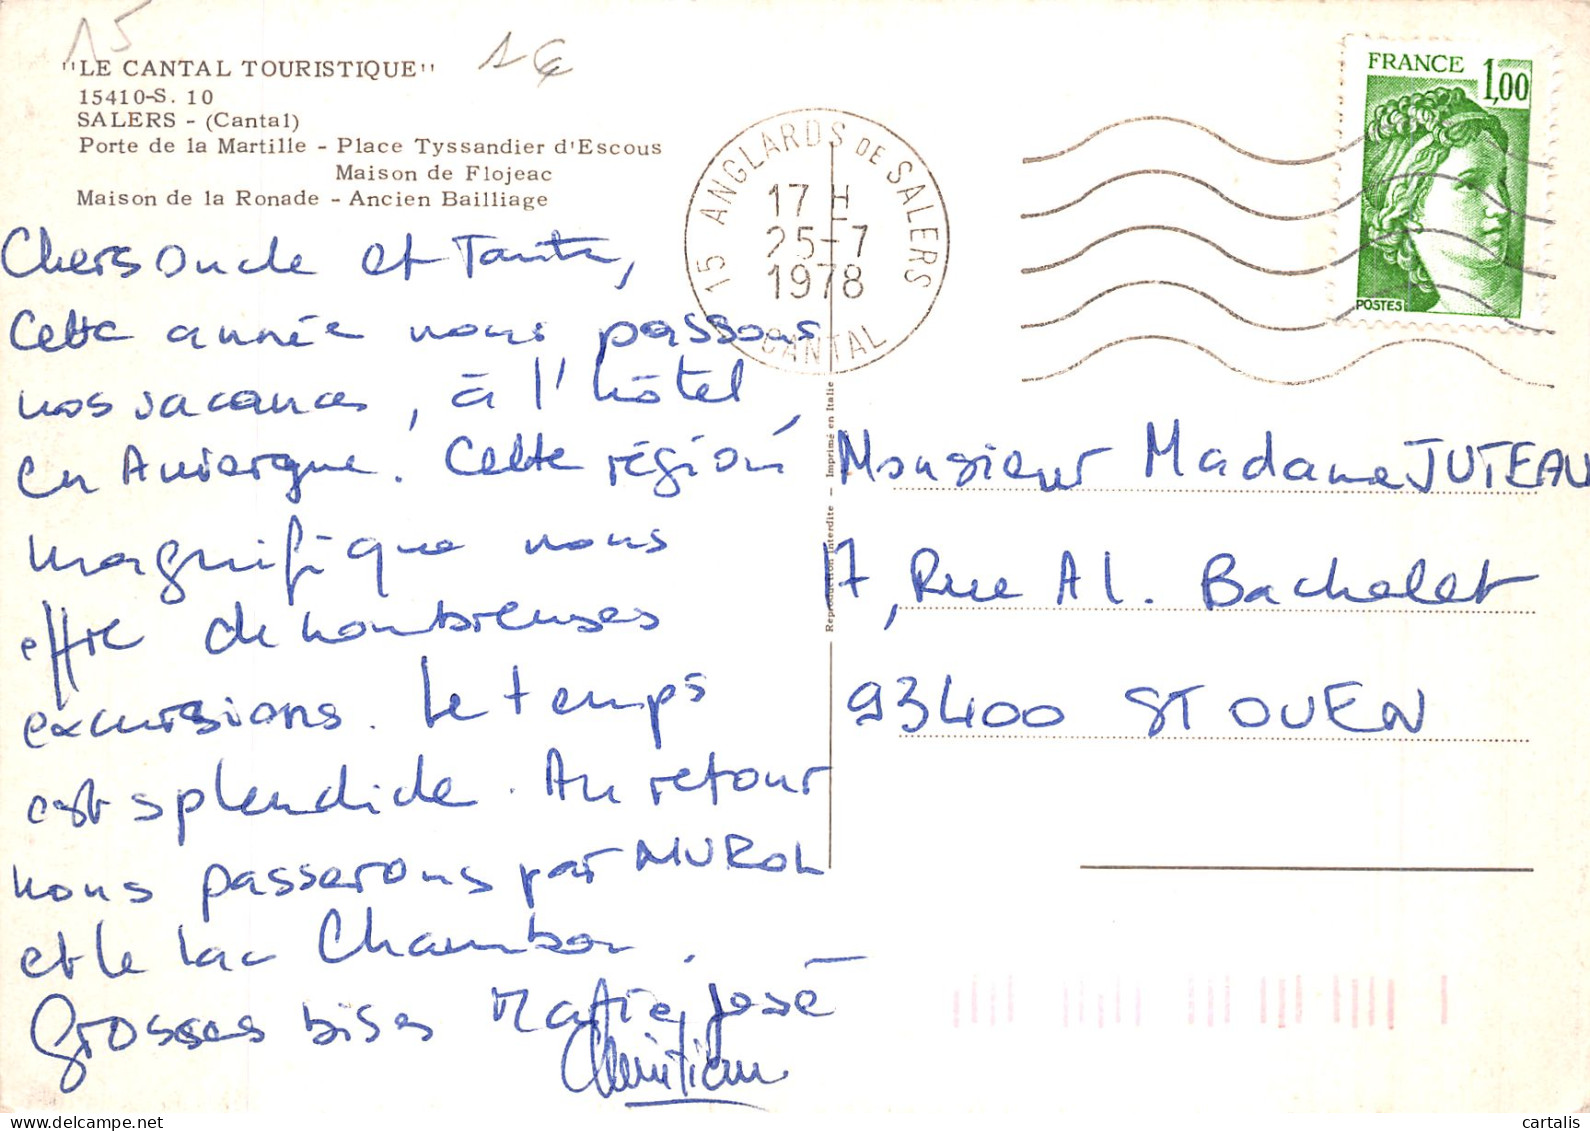 15
1 €
"LE CANTAL TOURISTIQUE"
15410-S. 10
SALERS - (Cantal)
Porte de la Martille - Place Tyssandier d'Escous
Maison de Flojeac
Maison de la Ronade - Ancien Bailliage
Chers Oncle et Tante,
Cette année nous passons
nos vacances, à l'hôtel,
en Auvergne. Cette région
magnifique nous
offre de nombreuses
excursions. Le temps
est splendide. Au retour
nous passerons par MUROL
et le lac Chambon.
Grosses bises Marie José
Christian
15 ANGLARDS DE SALERS
17 H
25-7
1978
CANTAL
FRANCE 1,00
POSTES
Reproduction interdite - Imprimé en Italie
Monsieur Madame JUTEAU
17, Rue Al. Bachelet
93400 ST OUEN
cartalis